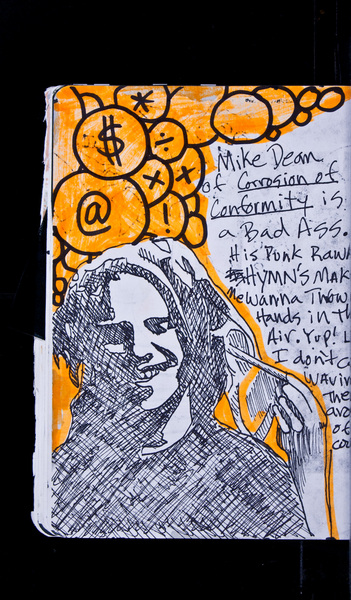 $
*
÷
×
×
@
!
Mike Dean
of Corrosion of
Conformity is
a Bad Ass.
His Punk Rawk
HYMN'S MAK
Me Wanna Throw
Hands in th
Air. Yup! L
I don't c
WAvin
The
aro
of